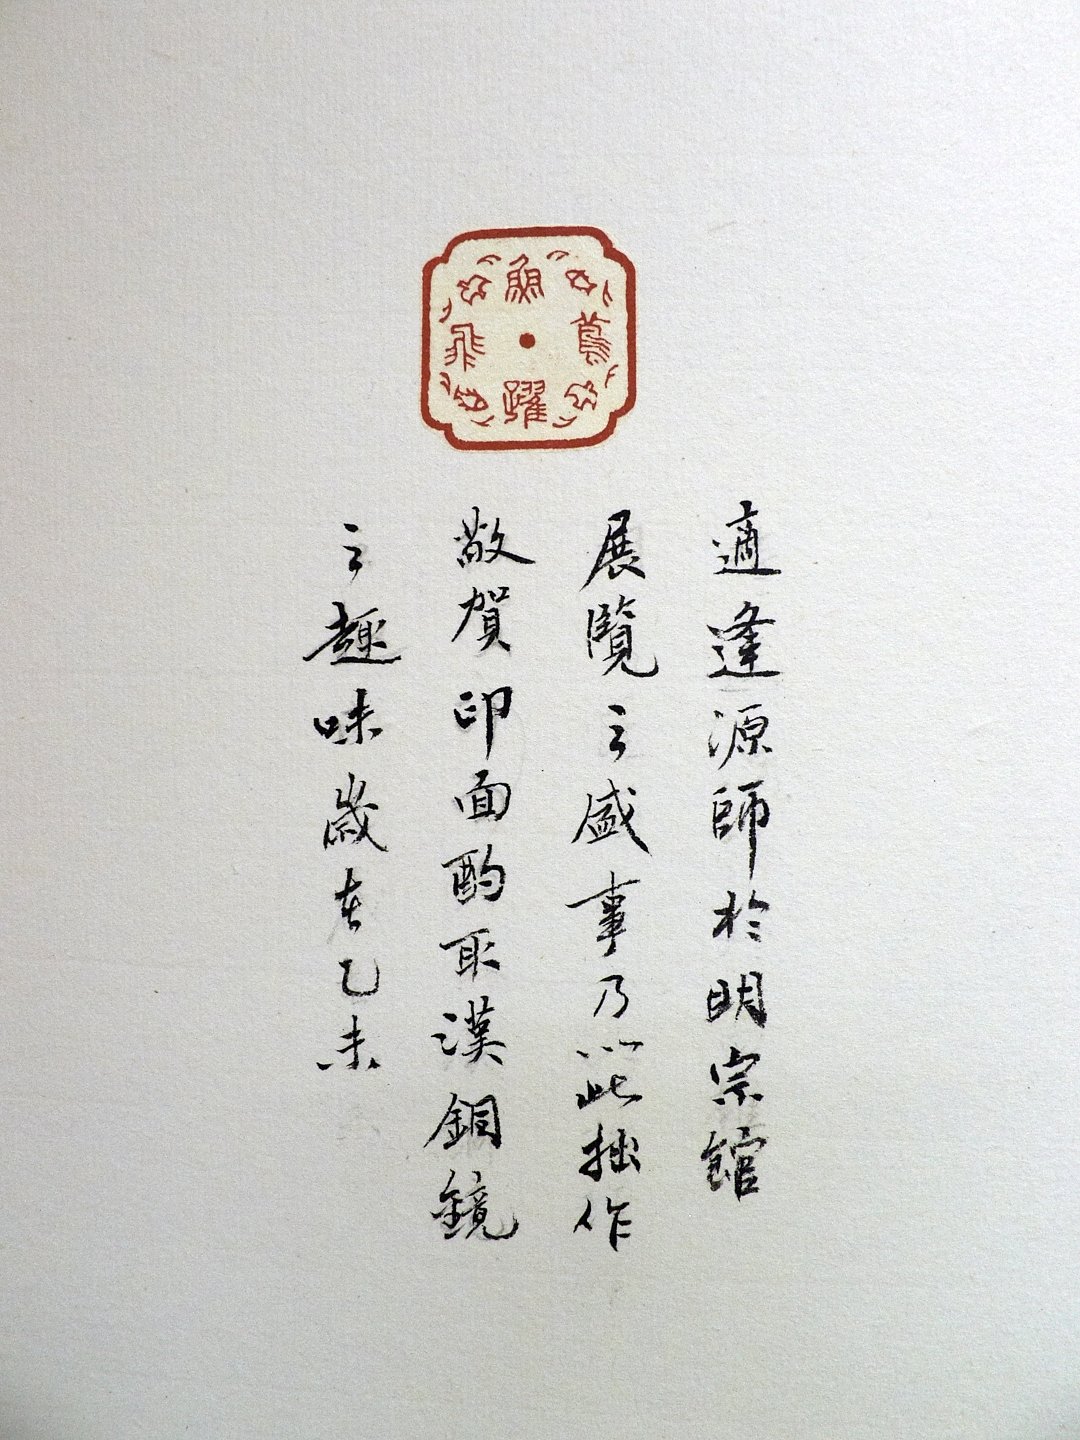 鳶飛魚躍
適逢源師於明宗館
展覽之盛事乃以此拙作
敬賀印面酌取漢銅鏡
之趣味歲在乙未